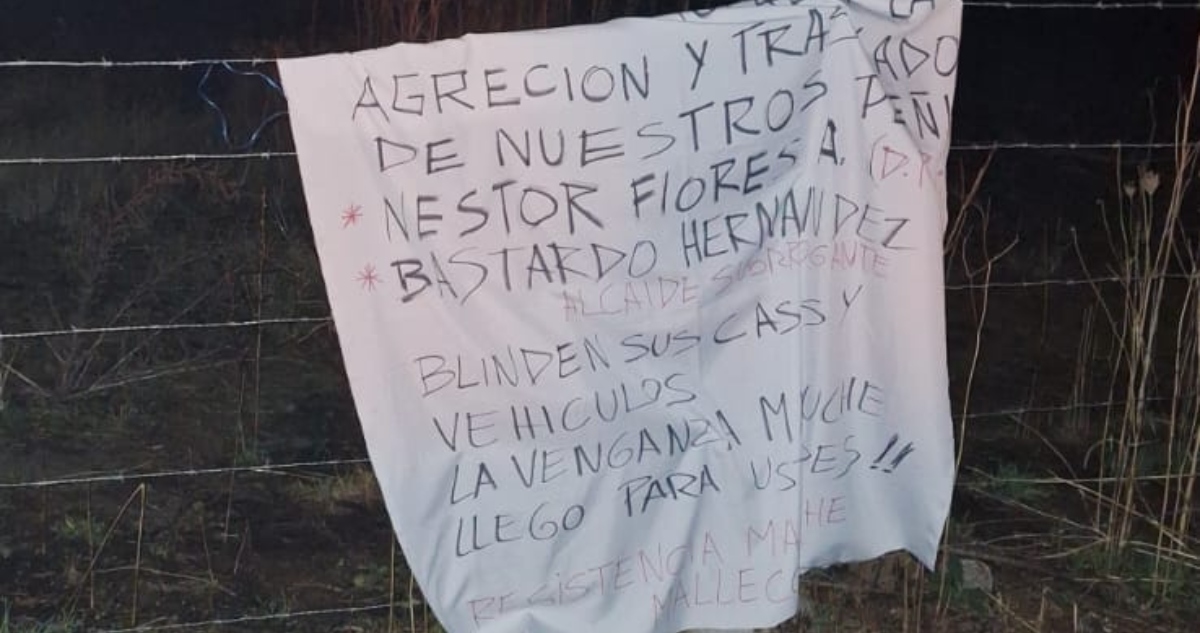 LA
AGRECION Y TRAS ADO
DE NUESTROS PEÑI
* NESTOR FLORES A. (D.R.
* BASTARDO HERNANDEZ
ALCAIDE SUBRROGANTE
BLINDEN SUS CASS Y
VEHICULOS
LA VENGANZA MUCHE
LLEGO PARA USTES !!
RESISTENCIA MA HE
MALLECO